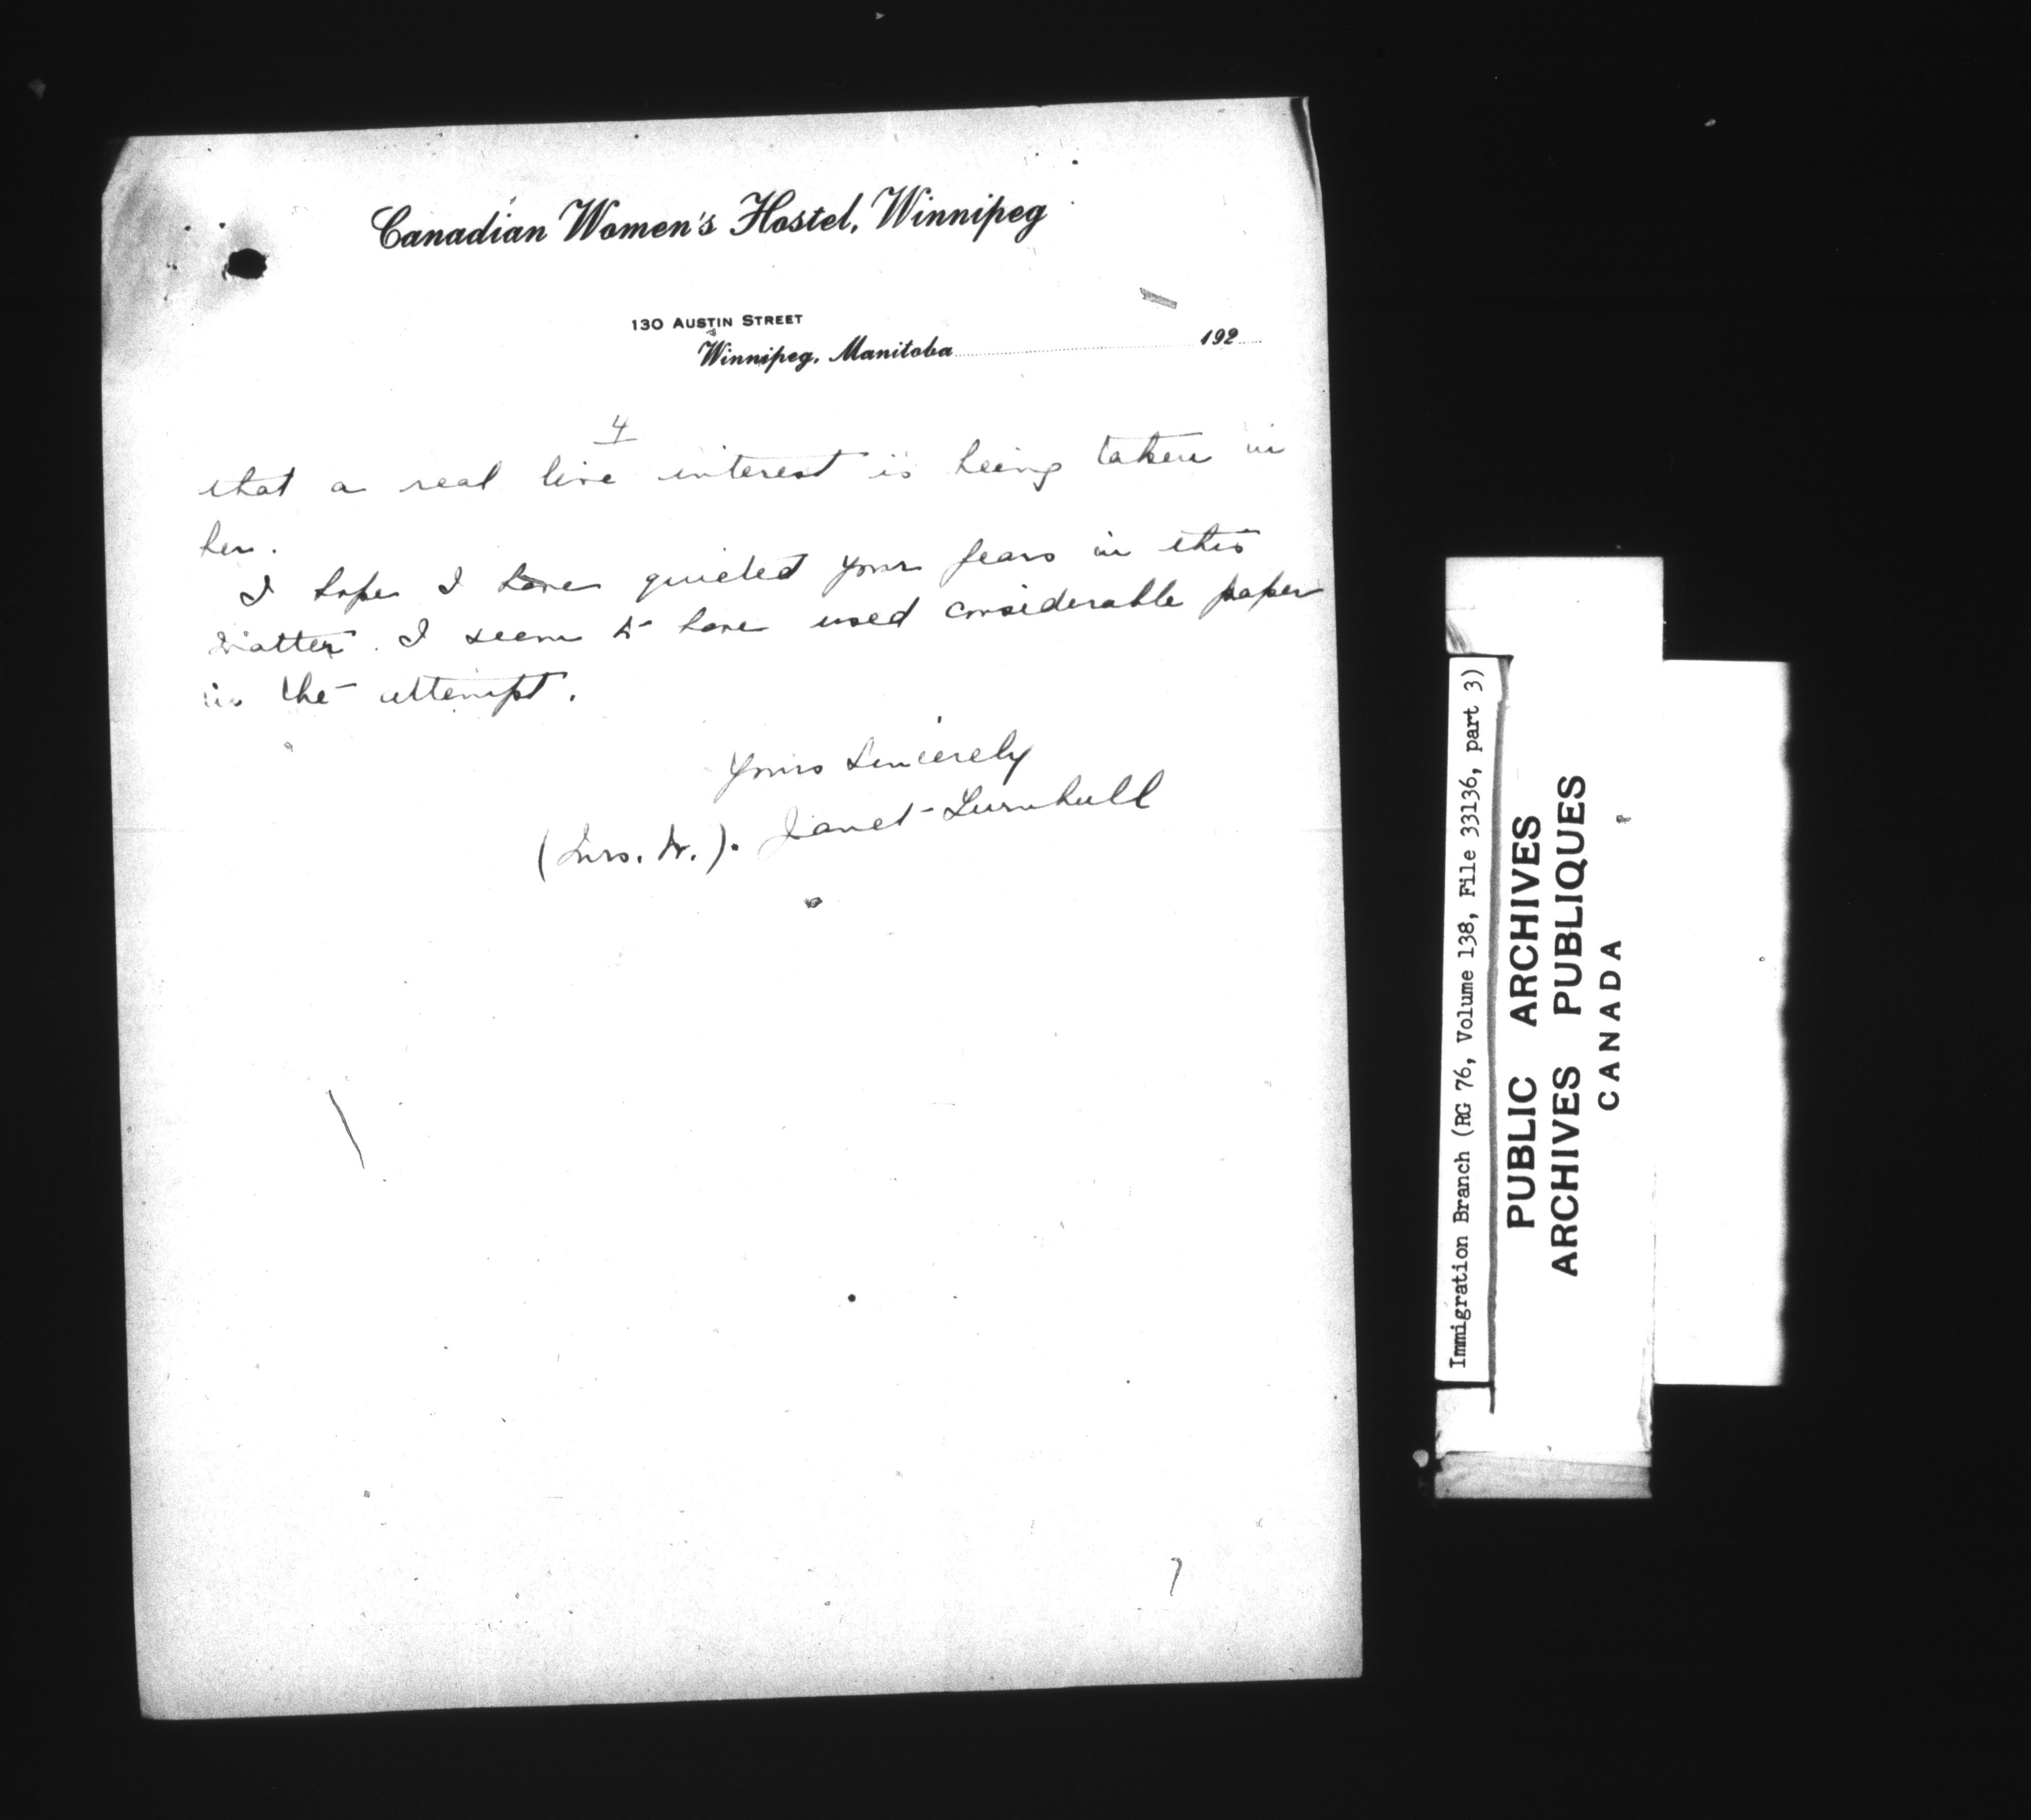 Canadian Women's Hostel, Winnipeg
130 AUSTIN STREET
Winnipeg, Manitoba 192
4
that a real live interest is being taken in
her.
I hope I have quieted your fears in this
matter. I seem to have used considerable paper
in the attempt.
Yours Sincerely
(Mrs. W.). Janet Turnbull
Immigration Branch (RG 76, Volume 138, File 33136, part 3)
PUBLIC ARCHIVES
ARCHIVES PUBLIQUES
CANADA